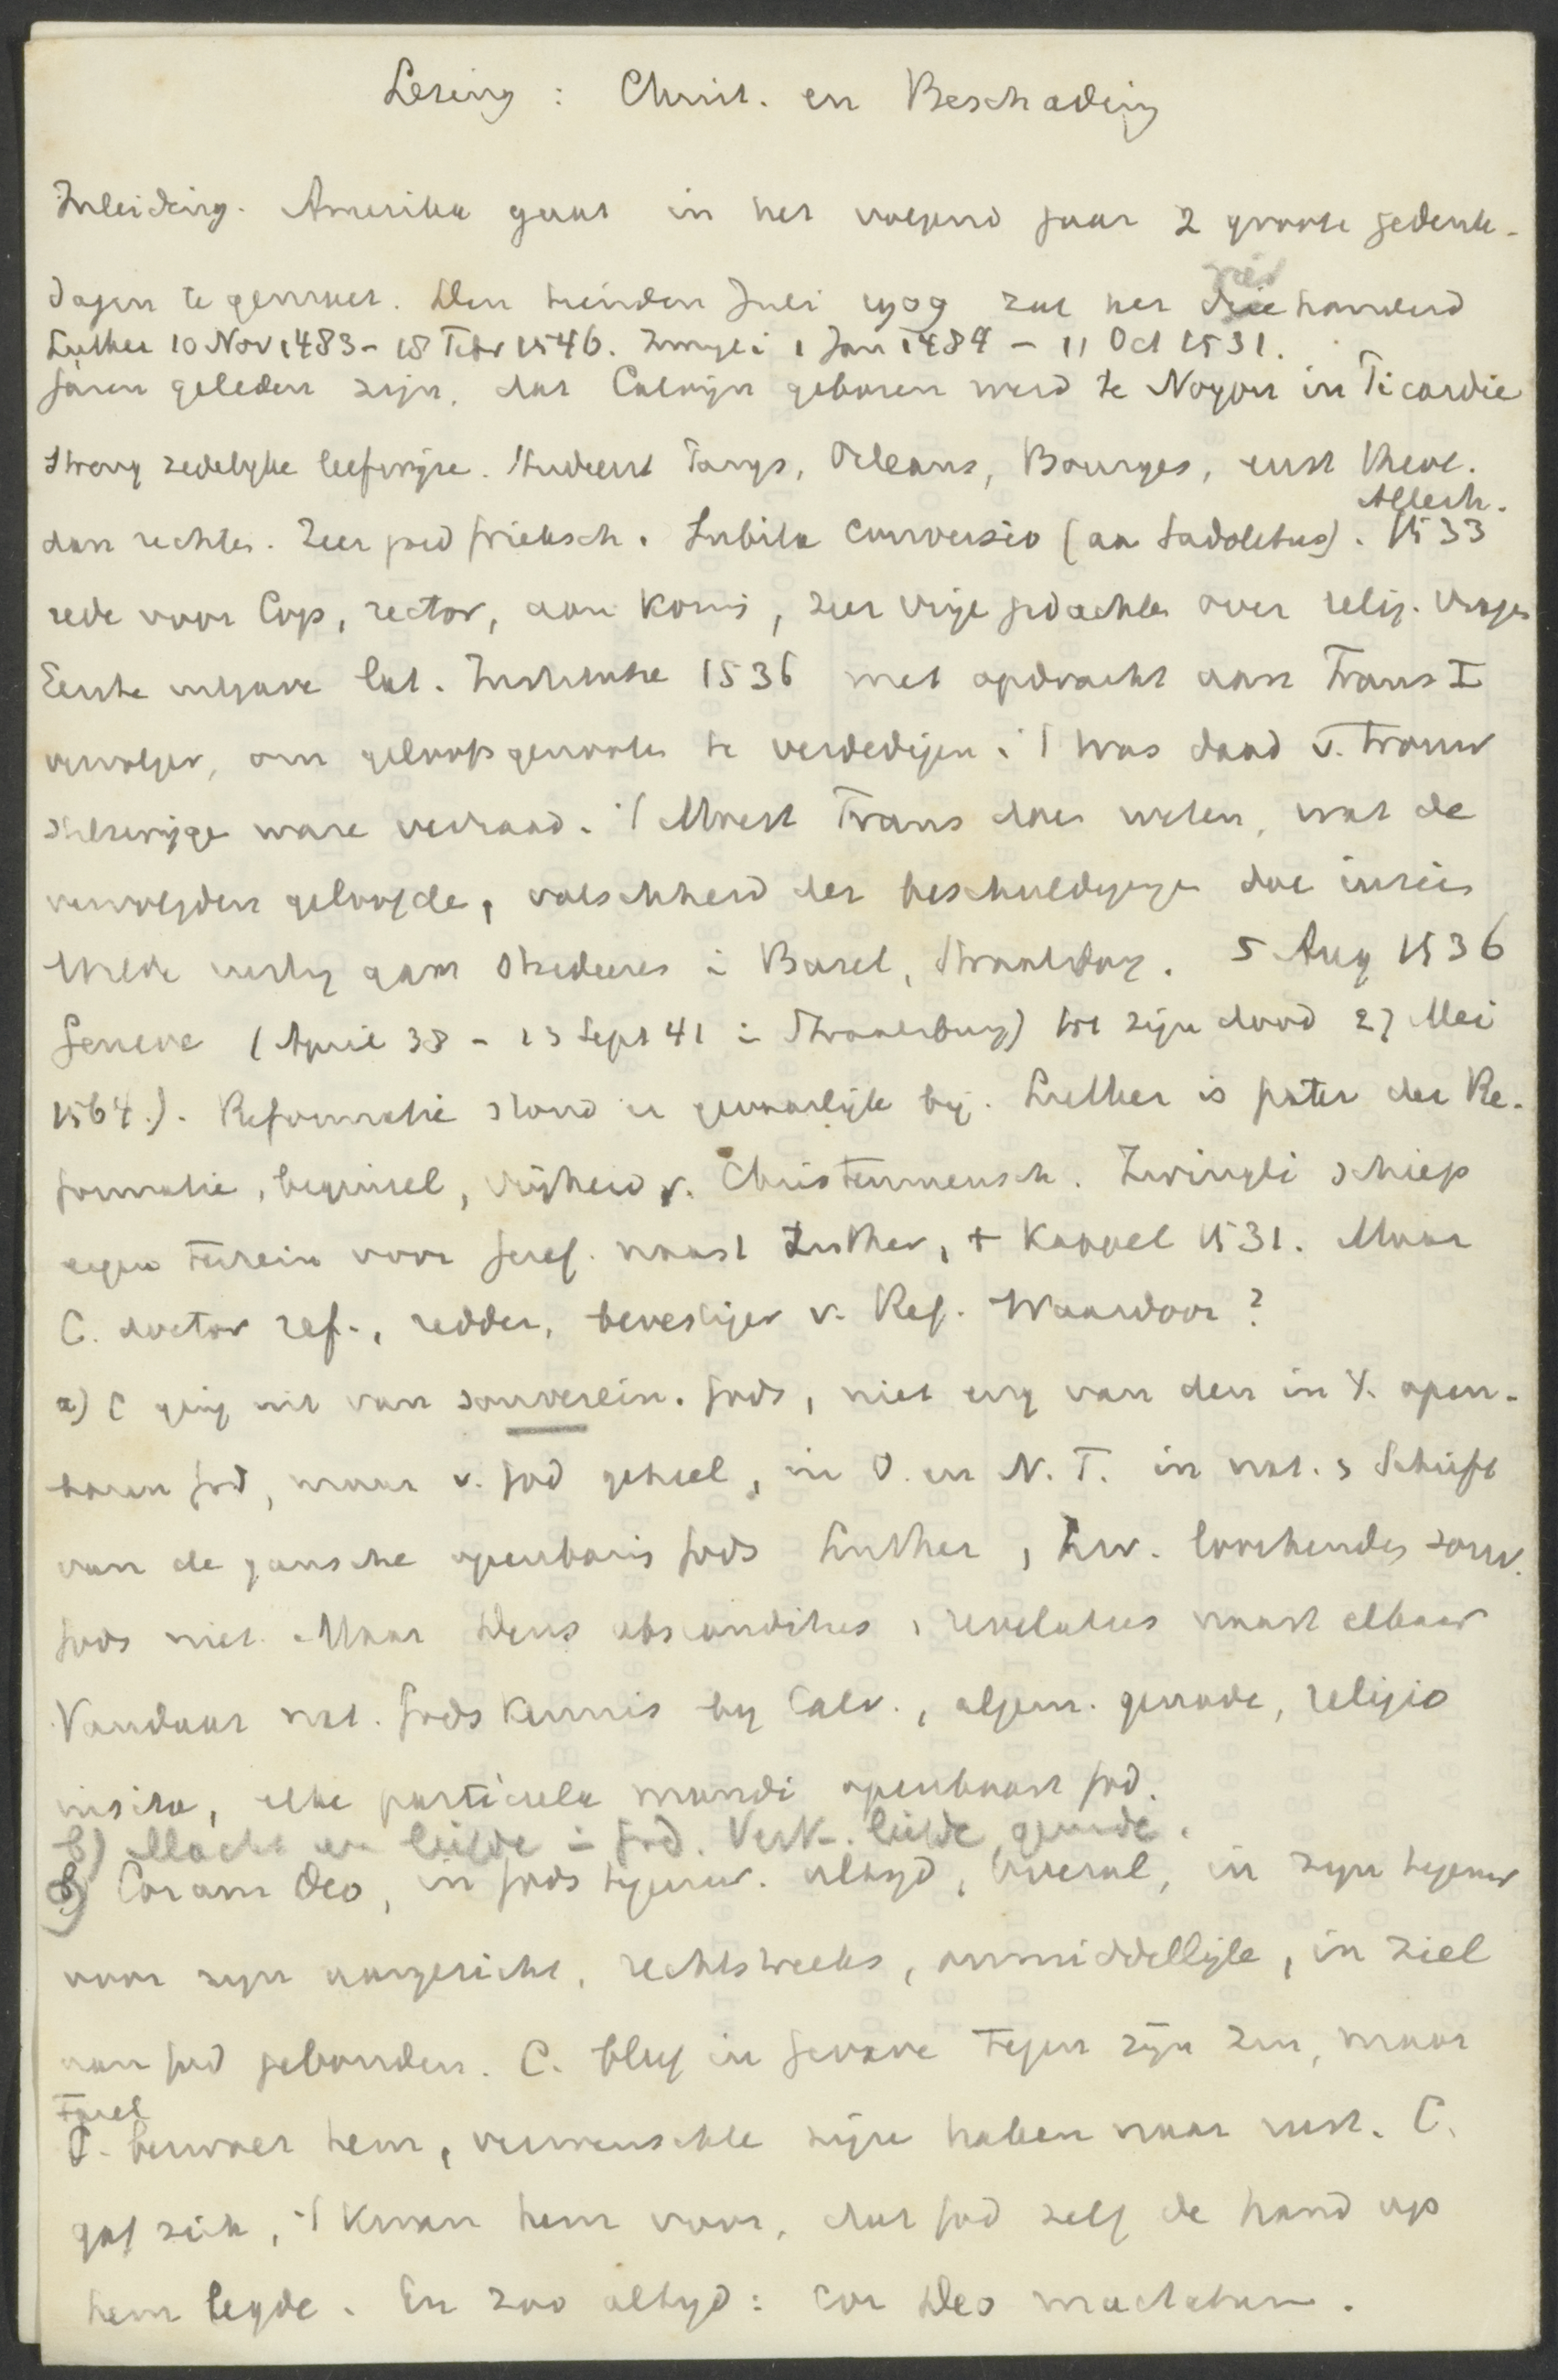 Lezing : Christ. en Beschaving
Inleiding. Amerika gaat in het volgend jaar 2 groote gedenk-
dagen te gemoet. Den tienden Juli 1909 zal het vierhonderd
Luther 10 Nov 1483 - 18 Febr 1546. Zwingli 1 Jan 1484 - 11 Oct 1531.
jaren geleden zijn, dat Calvijn geboren werd te Noyon in Picardie
Streng zedelijke leefwijze. Student Parijs, Orleans, Bourges, eerst theol.
dan rechten. Zeer goed juridisch. Subita conversio (aan Sadoletus). 1533 Allerh.
rede voor Cop, rector, aan Konis, zeer vrije gedachten over relig. vragen
Eerste uitgave lat. Institutie 1536 met opdracht aan Frans I
vervolger, om geloofsgenooten te verdedigen. 't Was daad v. trouw
stilzwijgen ware verraad. 't Moest Frans doen weten, wat de
vervolgden geloofden, valschheid der beschuldigingen doe inzien
Wilde rustig gaan studeeren in Basel, Straatsburg. 5 Aug 1536
Geneve (April 38 - 13 Sept 41 in Straatsburg) tot zijn dood 27 Mei
1564.). Reformatie stond er gevaarlijk bij. Luther is pater der Re-
formatie, beginsel, vrijheid v. Christenmensch. Zwingli schiep
eigen terrein voor Geref. naast Luther, + Kappel 1531. Maar
C. doctor ref., redder, bevestiger v. Ref. Waardoor?
a) C ging uit van souverein. Gods, niet enz van den in X. open-
baren God, maar v. God geheel, in O. en N. T. in nat. & Schrift
van de gansche openbaring Gods Luther, Zw. loochenden souv.
Gods niet. Maar Deus absconditus, revelatus naast elkaar
Vandaar nat. Godskennis by Calv., algem. genade, religio
insita, elke particula mundi openbaart God.
b) Macht en liefde in God. Verk. liefde, genade.
c) Coram Deo, in Gods tegenw. altijd, overal, in zijn tegenw
voor zijn aangezicht, rechtstreeks, onmiddellijk, in ziel
aan God gebonden. C. bleef in Geneve tegen zijn zin, maar
Farel
bezwoer hem, verwenschte zijne haken naar rust. C.
gaf zich, 't kwam hem voor, dat God zelf de hand op
hem legde. En zoo altijd: cor Deo mactatum.